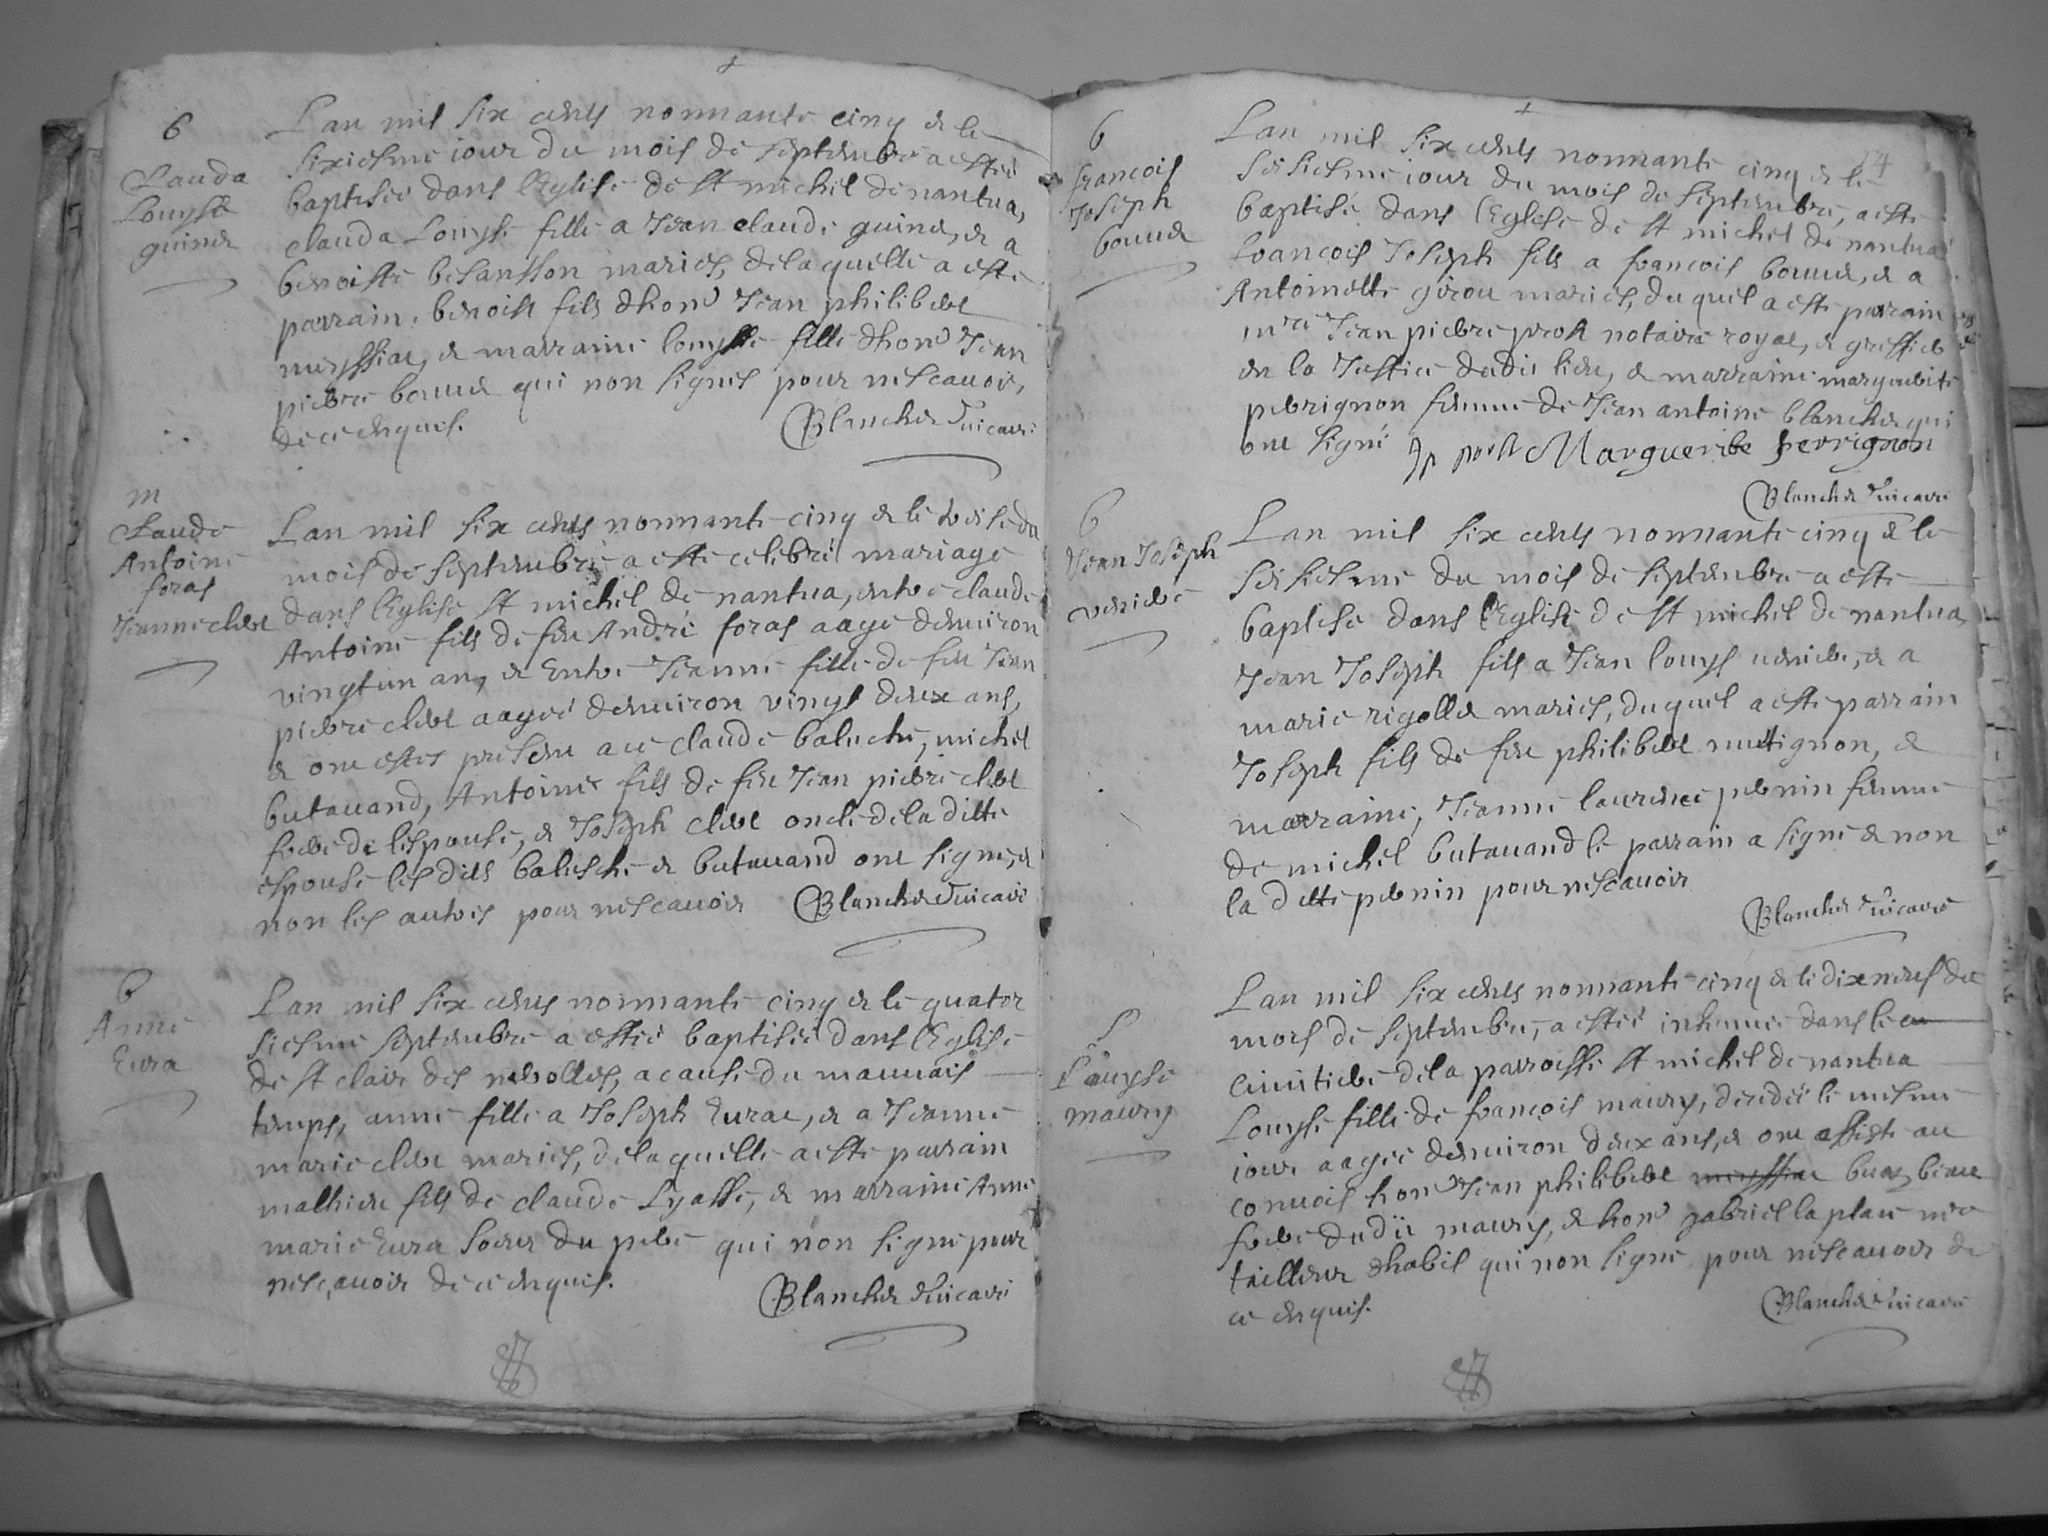 6
Clauda
Louyse
guinet
Lan mil six cents nonnante cinq et le
sixiesme iour du mois de septembre a estéé
baptiséé dans leglise de st michel de nantua,
clauda Louyse fille a Jean claude guinet, et a
benoiste besansson mariés, de laquelle a esté
parrain, benoist fils dhon Jean philibert
meyssiat, et marraine louyse fille dhon Jean
pierre bouuet qui non signes pour ne scauoir,
de ce enquis.
Blanchet vicaire
m
Claude
Antoine
foras
Jeanne clert
Lan mil six cents nonnante cinq et le treise du
mois de septembre a esté celebré mariage
dans leglise st michel de nantua, entre claude
Antoine fils de feu André foras aagé denuiron
vingt un an, et Entre Jeanne fille de feu Jean
pierre clert aagéé denuiron vingt deux ans,
et ont estes present a ce claude baluche, michel
butauand, Antoine fils de feu Jean pierre clert
frere de lespouse, et Joseph clert oncle de la ditte
espouse les dits balusche et butauand ont signe, et
non les autres pour ne scauoir
Blanchet vicaire
b
Anne
Eura
Lan mil six cents nonnante cinq et le quator
siesme septembre a estéé baptiséé dans leglise
de st clair des nerolles, a cause du mauuais
temps, anne fille a Joseph Eurat, et a Jeanne
marie clert mariés, de laquelle a esté parrain
mathieu fils de claude Lyasse, et marraine Anne
marie Eura soeur du pere qui non signe pour
ne scauoir de ce enquis.
Blanchet vicaire
14
6
francois
Joseph
bouuet
Lan mil six cents nonnante cinq et le
seisiesme iour du mois de septembre, a esté
baptisé dans leglise de st michel de nantua
francois Joseph fils a francois bouuet, et a
Antoinette girou mariés, du quel a esté parrain
mre Jean pierre prost notaire royal, et greffier
en la Justice dudit lieu, et marraine marguerite
perrignon femme de Jean antoine blanchet qui
ont signé Jp prost Marguerite perrignon
Blanchet vicaire
b
Jean Joseph
veniere
Lan mil six cents nonnante cinq et le
seisiesme du mois de septembre a esté
baptisé dans leglise de st michel de nantua
Jean Joseph fils a Jean louys ueniere, et a
marie rigollet mariés, du quel a esté parrain
Joseph fils de feu philibert mettignon, et
marraine, Jeanne laurence pernin femme
de michel butauand le parrain a signé et non
la ditte pernin pour ne scauoir
Blanchet vicaire
S
Louyse
maury
Lan mil six cents nonnante cinq et le dix neuf du
mois de septembre, a estéé inhuméé dans le
cimitiere de la parroisse st michel de nantua
Louyse fille de francois maury, decedéé le mesme
iour aagéé denuiron deux ans, et ont assisté au
conuois hon Jean philibert meyssiat beau
frere dudit maury, et hon gabriel la place mre
tailleur dhabit qui non signe pour ne scauoir de
ce enquis.
Blanchet vicaire